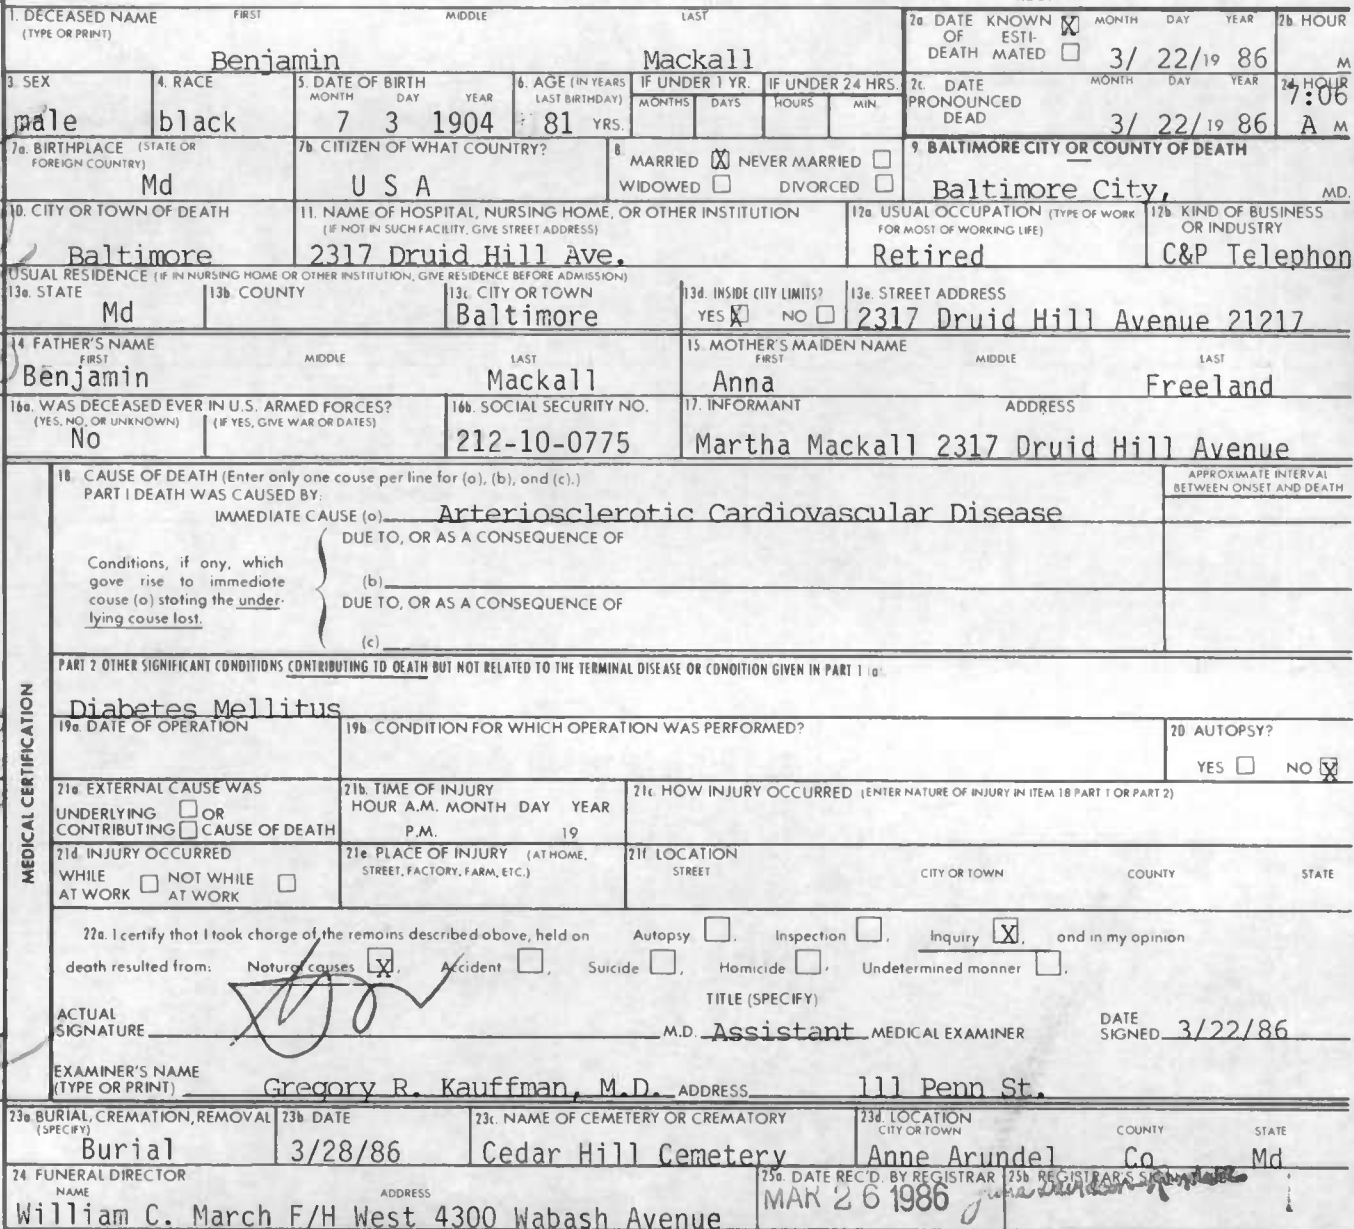 1. DECEASED NAME FIRST MIDDLE LAST
(TYPE OR PRINT)
Benjamin Mackall
2a. DATE KNOWN X MONTH DAY YEAR 2b. HOUR
OF ESTI-
DEATH MATED 3/ 22/19 86 M
3. SEX 4. RACE 5. DATE OF BIRTH 6. AGE (IN YEARS IF UNDER 1 YR. IF UNDER 24 HRS. 2c. DATE MONTH DAY YEAR 2d. HOUR
MONTH DAY YEAR LAST BIRTHDAY) MONTHS DAYS HOURS MIN. PRONOUNCED 7:06
male black 7 3 1904 81 YRS. DEAD 3/ 22/19 86 A M
7a. BIRTHPLACE (STATE OR FOREIGN COUNTRY)
Md
7b. CITIZEN OF WHAT COUNTRY?
U S A
8. MARRIED X NEVER MARRIED
WIDOWED DIVORCED
9. BALTIMORE CITY OR COUNTY OF DEATH
Baltimore City, MD.
10. CITY OR TOWN OF DEATH
Baltimore
11. NAME OF HOSPITAL, NURSING HOME, OR OTHER INSTITUTION
(IF NOT IN SUCH FACILITY, GIVE STREET ADDRESS)
2317 Druid Hill Ave.
12a. USUAL OCCUPATION (TYPE OF WORK
FOR MOST OF WORKING LIFE)
Retired
12b. KIND OF BUSINESS
OR INDUSTRY
C&P Telephon
USUAL RESIDENCE (IF IN NURSING HOME OR OTHER INSTITUTION, GIVE RESIDENCE BEFORE ADMISSION)
13a. STATE 13b. COUNTY 13c. CITY OR TOWN 13d. INSIDE CITY LIMITS? 13e. STREET ADDRESS
Md Baltimore YES X NO 2317 Druid Hill Avenue 21217
14. FATHER'S NAME
FIRST MIDDLE LAST
Benjamin Mackall
15. MOTHER'S MAIDEN NAME
FIRST MIDDLE LAST
Anna Freeland
16a. WAS DECEASED EVER IN U.S. ARMED FORCES?
(YES, NO, OR UNKNOWN) (IF YES, GIVE WAR OR DATES)
No
16b. SOCIAL SECURITY NO.
212-10-0775
17. INFORMANT ADDRESS
Martha Mackall 2317 Druid Hill Avenue
MEDICAL CERTIFICATION
18. CAUSE OF DEATH (Enter only one cause per line for (a), (b), and (c).)
PART I DEATH WAS CAUSED BY:
APPROXIMATE INTERVAL
BETWEEN ONSET AND DEATH
IMMEDIATE CAUSE (a) Arteriosclerotic Cardiovascular Disease
DUE TO, OR AS A CONSEQUENCE OF
Conditions, if any, which
gave rise to immediate
cause (a) stating the under-
lying cause last.
(b)
DUE TO, OR AS A CONSEQUENCE OF
(c)
PART 2 OTHER SIGNIFICANT CONDITIONS CONTRIBUTING TO DEATH BUT NOT RELATED TO THE TERMINAL DISEASE OR CONDITION GIVEN IN PART 1 (a)
Diabetes Mellitus
19a. DATE OF OPERATION 19b. CONDITION FOR WHICH OPERATION WAS PERFORMED? 20. AUTOPSY?
YES NO X
21a. EXTERNAL CAUSE WAS
UNDERLYING OR
CONTRIBUTING CAUSE OF DEATH
21b. TIME OF INJURY
HOUR A.M. MONTH DAY YEAR
P.M. 19
21c. HOW INJURY OCCURRED (ENTER NATURE OF INJURY IN ITEM 18 PART 1 OR PART 2)
21d. INJURY OCCURRED
WHILE NOT WHILE
AT WORK AT WORK
21e. PLACE OF INJURY (AT HOME,
STREET, FACTORY, FARM, ETC.)
21f. LOCATION
STREET CITY OR TOWN COUNTY STATE
22a. I certify that I took charge of the remains described above, held on Autopsy, Inspection, Inquiry X, and in my opinion
death resulted from: Natural causes X, Accident, Suicide, Homicide, Undetermined manner.
TITLE (SPECIFY)
ACTUAL
SIGNATURE M.D. Assistant MEDICAL EXAMINER DATE
SIGNED 3/22/86
EXAMINER'S NAME
(TYPE OR PRINT) Gregory R. Kauffman, M.D. ADDRESS 111 Penn St.
23a. BURIAL, CREMATION, REMOVAL
(SPECIFY)
Burial
23b. DATE
3/28/86
23c. NAME OF CEMETERY OR CREMATORY
Cedar Hill Cemetery
23d. LOCATION
CITY OR TOWN COUNTY STATE
Anne Arundel Co Md
24. FUNERAL DIRECTOR
NAME ADDRESS
William C. March F/H West 4300 Wabash Avenue
25a. DATE REC'D. BY REGISTRAR
MAR 26 1986
25b. REGISTRAR'S SIGNATURE